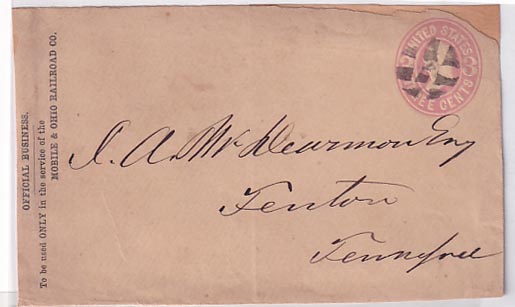 OFFICIAL BUSINESS.
To be used ONLY in the service of the
MOBILE & OHIO RAILROAD CO.
UNITED STATES
3 3
EE CENTS
A. McDearmon Esq
Tenton
Tennessee